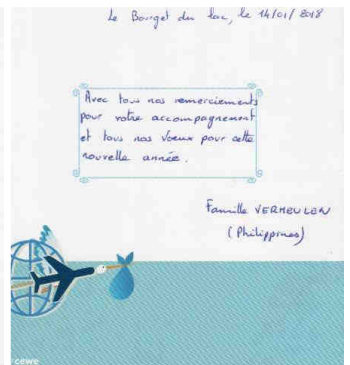 Le Bourget du lac, le 14/01/2018
Avec tous nos remerciements
pour votre accompagnement
et tous nos Vœux pour cette
nouvelle année.
Famille VERMEULEN
(Philippines)
cewe